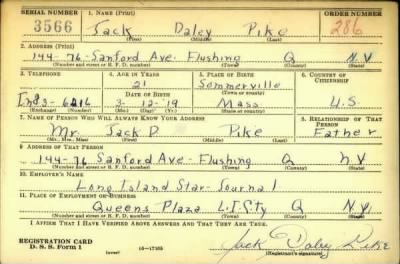 SERIAL NUMBER 1. NAME (Print) ORDER NUMBER
3566 Jack Daley Pike 286
(First) (Middle) (Last)
2. ADDRESS (Print)
144-76-Sanford Ave. Flushing Q N.Y.
(Number and street or R. F. D. number) (Town) (County) (State)
3. TELEPHONE 4. AGE IN YEARS 5. PLACE OF BIRTH 6. COUNTRY OF CITIZENSHIP
21 Sommerville
DATE OF BIRTH (Town or county)
Ind3-6216 3-12-'19 Mass U.S.
(Exchange) (Number) (Mo.) (Day) (Yr.) (State or country)
7. NAME OF PERSON WHO WILL ALWAYS KNOW YOUR ADDRESS 8. RELATIONSHIP OF THAT PERSON
Mr. Jack D. Pike Father
(Mr., Mrs., Miss) (First) (Middle) (Last)
9. ADDRESS OF THAT PERSON
144-76 Sanford Ave-Flushing Q N.Y.
(Number and street or R. F. D. number) (Town) (County) (State)
10. EMPLOYER'S NAME
Long Island Star-Journal
11. PLACE OF EMPLOYMENT OR BUSINESS
Queens Plaza L.I.City Q N.Y.
(Number and street or R. F. D. number) (Town) (County) (State)
I AFFIRM THAT I HAVE VERIFIED ABOVE ANSWERS AND THAT THEY ARE TRUE.
REGISTRATION CARD
D. S. S. Form 1 (over) 16-17105 Jack Daley Pike
(Registrant's signature)